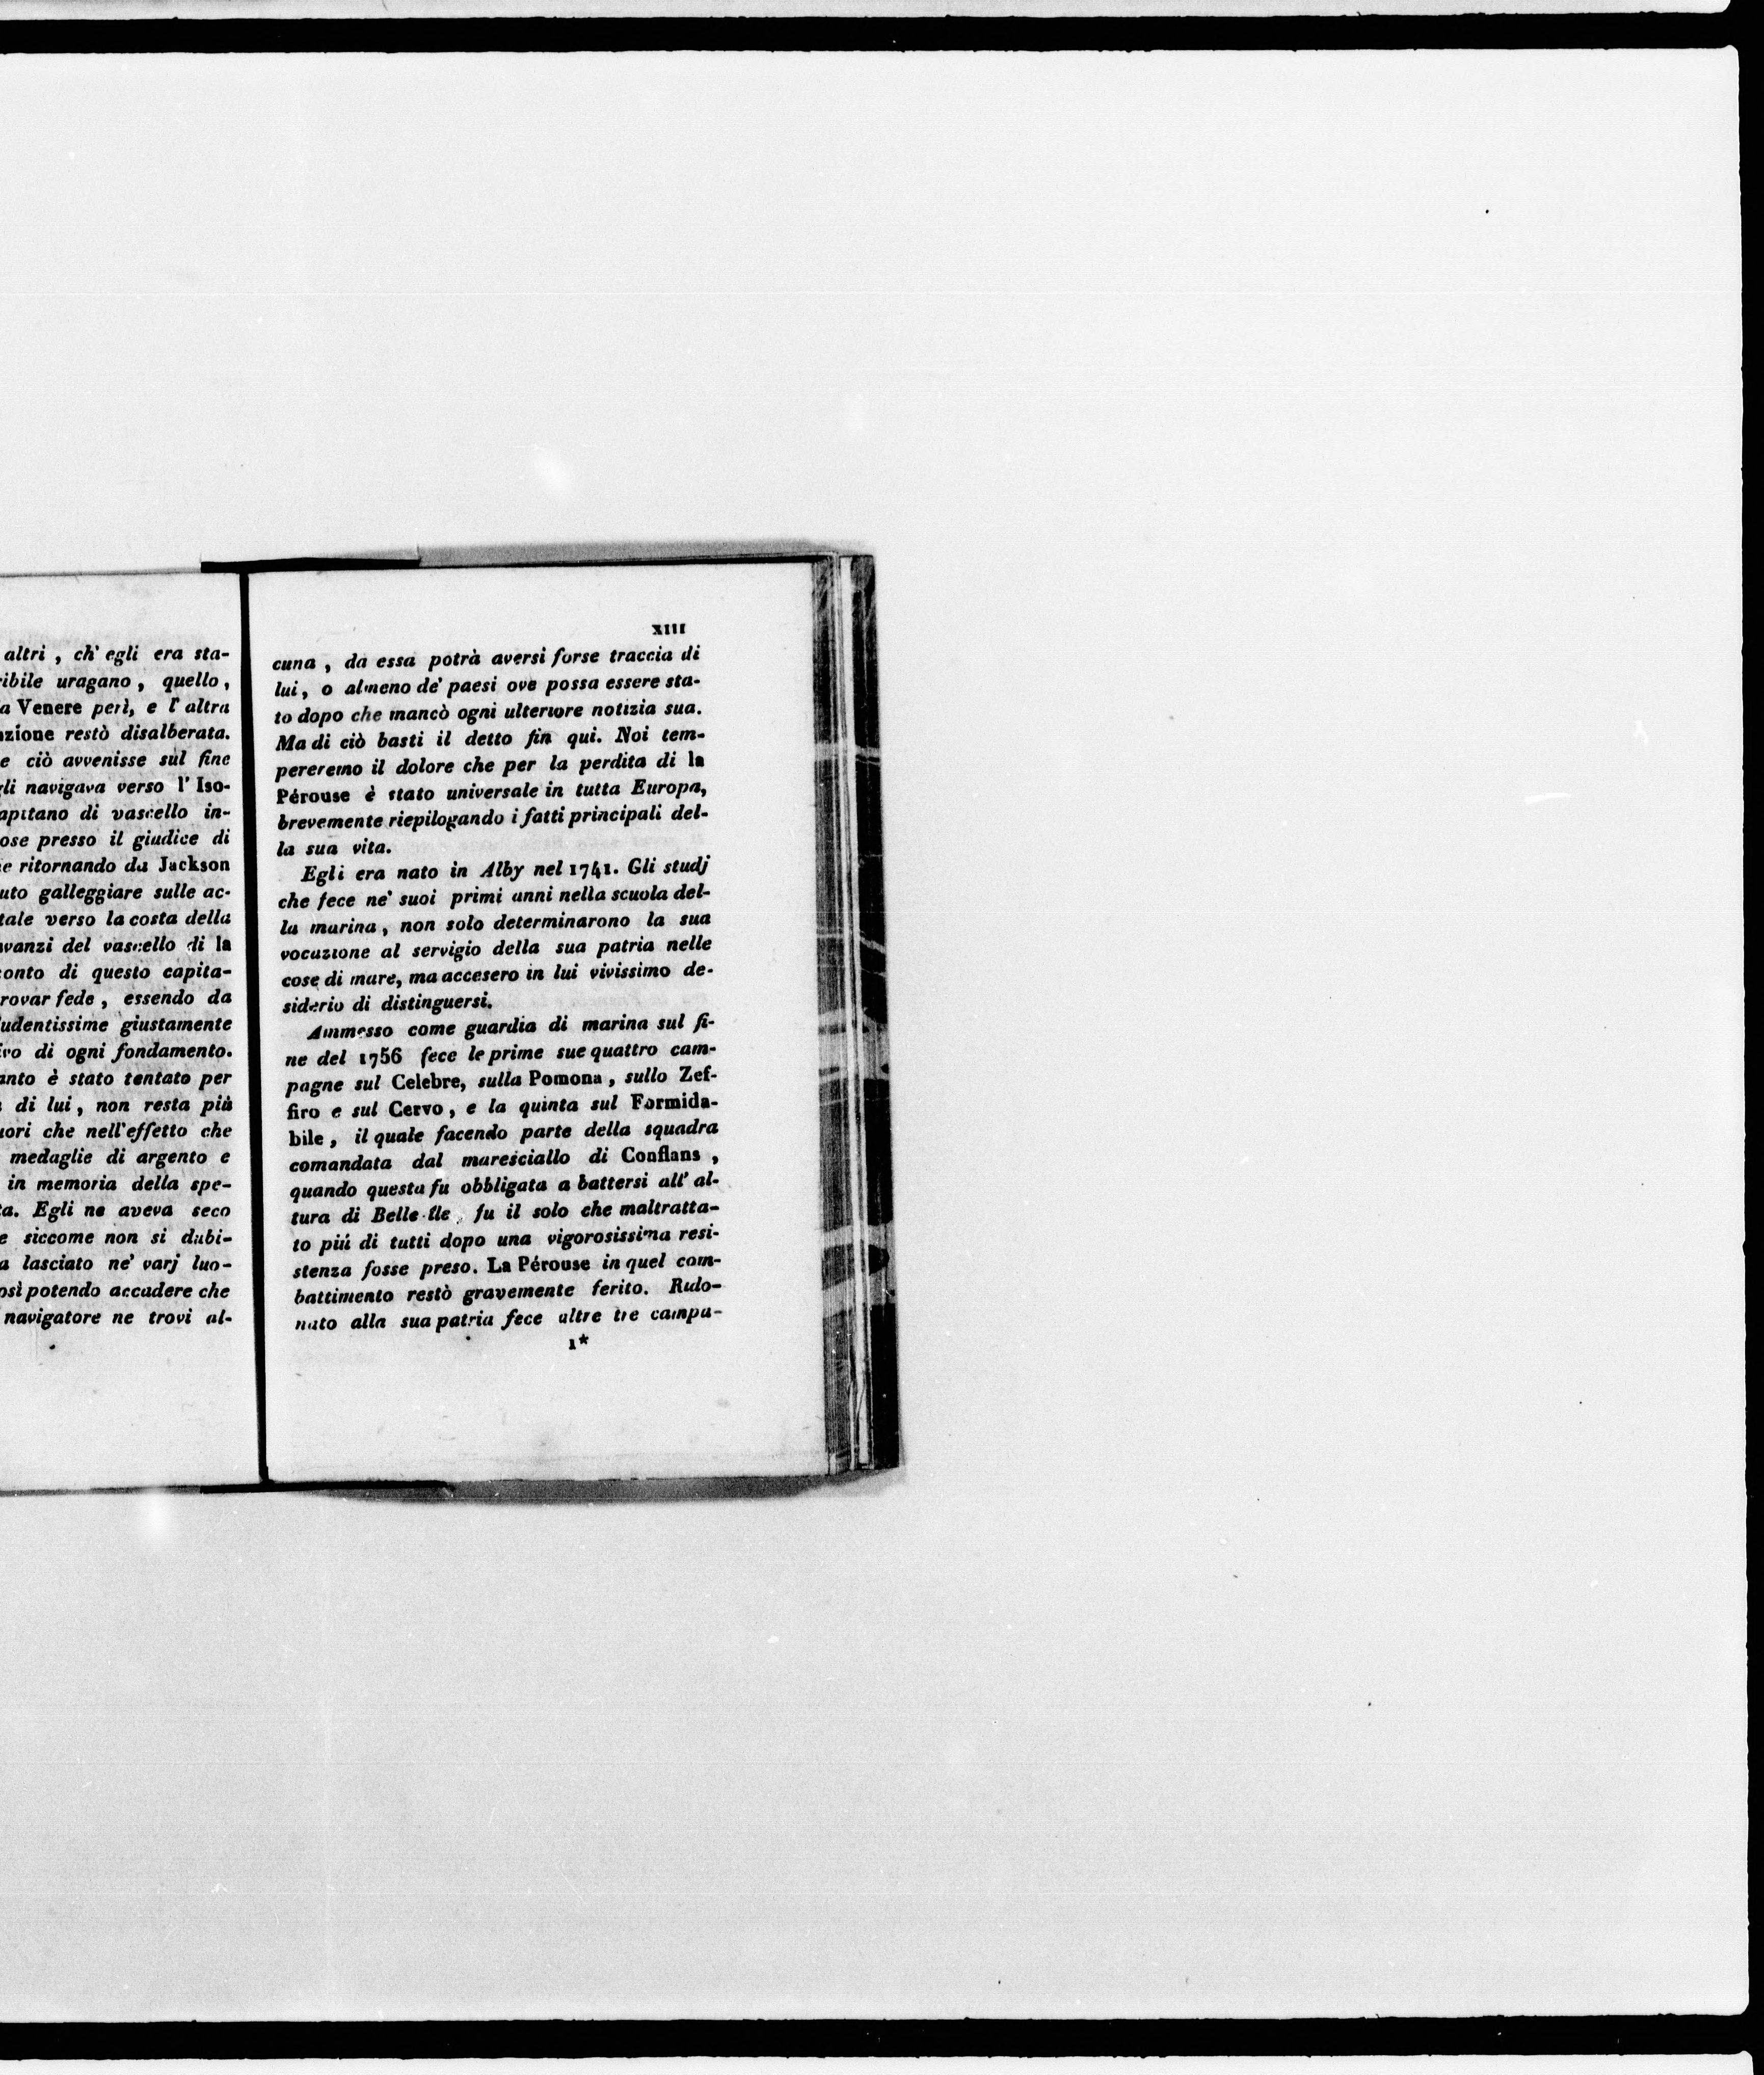 altri , ch' egli era sta-
ribile uragano , quello ,
a Venere perì, e l' altra
azione restò disalberata.
e ciò avvenisse sul fine
gli navigava verso l' Iso-
apitano di vascello in-
ose presso il giudice di
e ritornando da Jackson
uto galleggiare sulle ac-
tale verso la costa della
avanzi del vascello di la
conto di questo capita-
rovar fede , essendo da
udentissime giustamente
ivo di ogni fondamento.
anto è stato tentato per
di lui , non resta più
uori che nell'effetto che
medaglie di argento e
in memoria della spe-
ta. Egli ne aveva seco
e siccome non si dubi-
a lasciato ne' varj luo-
osì potendo accadere che
navigatore ne trovi al-
XIII
cuna , da essa potrà aversi forse traccia di
lui , o almeno de' paesi ove possa essere sta-
to dopo che mancò ogni ulteriore notizia sua.
Ma di ciò basti il detto fin qui. Noi tem-
pereremo il dolore che per la perdita di la
Pérouse è stato universale in tutta Europa,
brevemente riepilogando i fatti principali del-
la sua vita.
Egli era nato in Alby nel 1741. Gli studj
che fece ne' suoi primi anni nella scuola del-
la marina , non solo determinarono la sua
vocazione al servigio della sua patria nelle
cose di mare, ma accesero in lui vivissimo de-
siderio di distinguersi.
Ammesso come guardia di marina sul fi-
ne del 1756 fece le prime sue quattro cam-
pagne sul Celebre, sulla Pomona , sullo Zef-
firo e sul Cervo , e la quinta sul Formida-
bile , il quale facendo parte della squadra
comandata dal maresciallo di Conflans ,
quando questa fu obbligata a battersi all' al-
tura di Belle-Ile , fu il solo che maltratta-
to più di tutti dopo una vigorosissima resi-
stenza fosse preso. La Pérouse in quel com-
battimento restò gravemente ferito. Rido-
nato alla sua patria fece altre tre campa-
1*